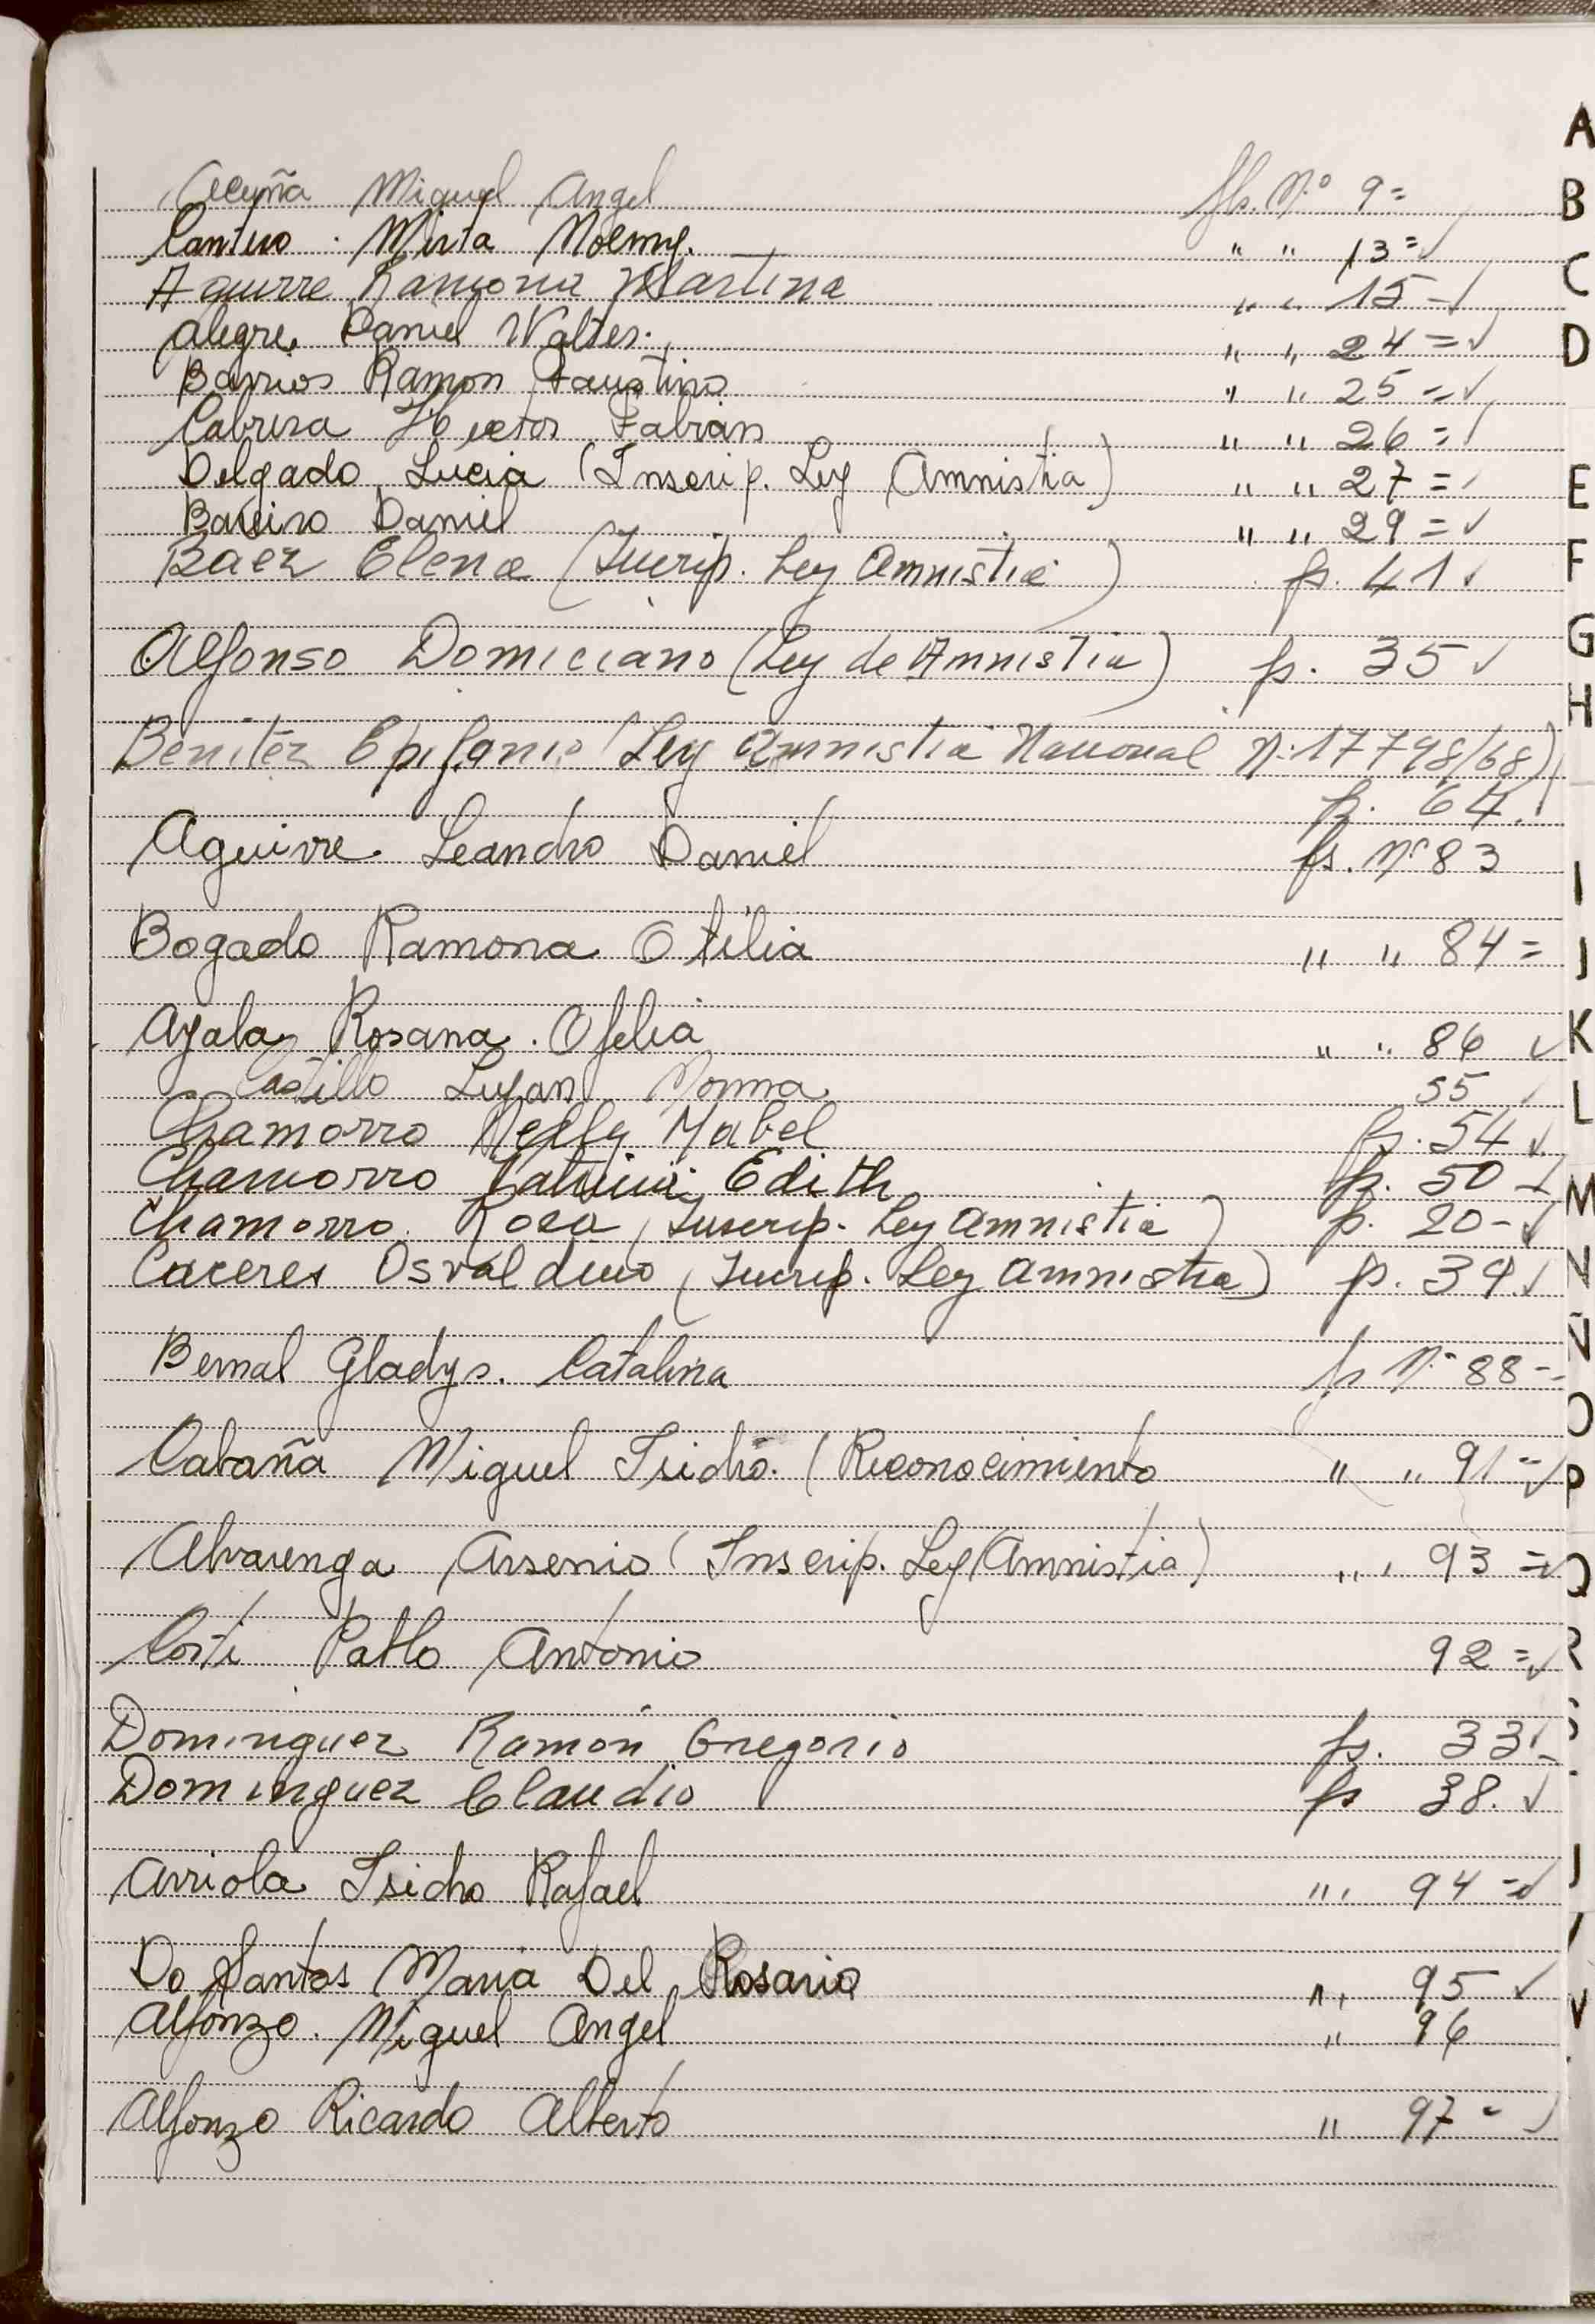 Acuña Miguel Angel fls. Nº 9=
Cantero. Mirta Noemy. " " 13=✓
Aguirre Ramona Martina " " 15=✓
Alegre Daniel Walter. " " 24=✓
Barrios Ramon Faustino " " 25=✓
Cabrera Hector Fabian " " 26=✓
Delgado Lucia (Inscrip. Ley Amnistia) " " 27=✓
Barreiro Daniel " " 29=✓
Baez Elena (Inscrip. Ley Amnistia) fs. 41✓
Alfonso Domiciano (Ley de Amnistia) fs. 35✓
Benitez Epifanio (Ley Amnistia Nacional Nº 17798/68)
fs. 64.✓
Aguirre Leandro Daniel fs. Nº 83
Bogado Ramona Otilia " " 84=
Ayala Rosana. Ofelia " " 86 ✓
Castillo Lujan Norma 55 ✓
Chamorro Nelly Mabel fs. 54✓
Chamorro Patricia Edith fs. 50✓
Chamorro Rosa (Inscrip. Ley Amnistia) fs. 20-✓
Caceres Osvaldino (Inscrip. Ley Amnistia) fs. 39.✓
Bernal Gladys. Catalina fs Nº 88=
Cabaña Miguel Isidro. (Reconocimiento " " 91=✓
Alvarenga Arsenio (Inscrip. Ley Amnistia) " " 93=✓
Corti Pablo Antonio 92=✓
Dominguez Ramón Gregorio fs. 33✓
Dominguez Claudio fs 38.✓
Arriola Isidro Rafael " " 94=✓
Do Santos Maria Del Rosario " " 95 ✓
Alfonzo. Miguel Angel " 96
Alfonzo Ricardo Alberto " 97=✓
A
B
C
D
E
F
G
H
I
J
K
L
M
N
Ñ
O
P
Q
R
S